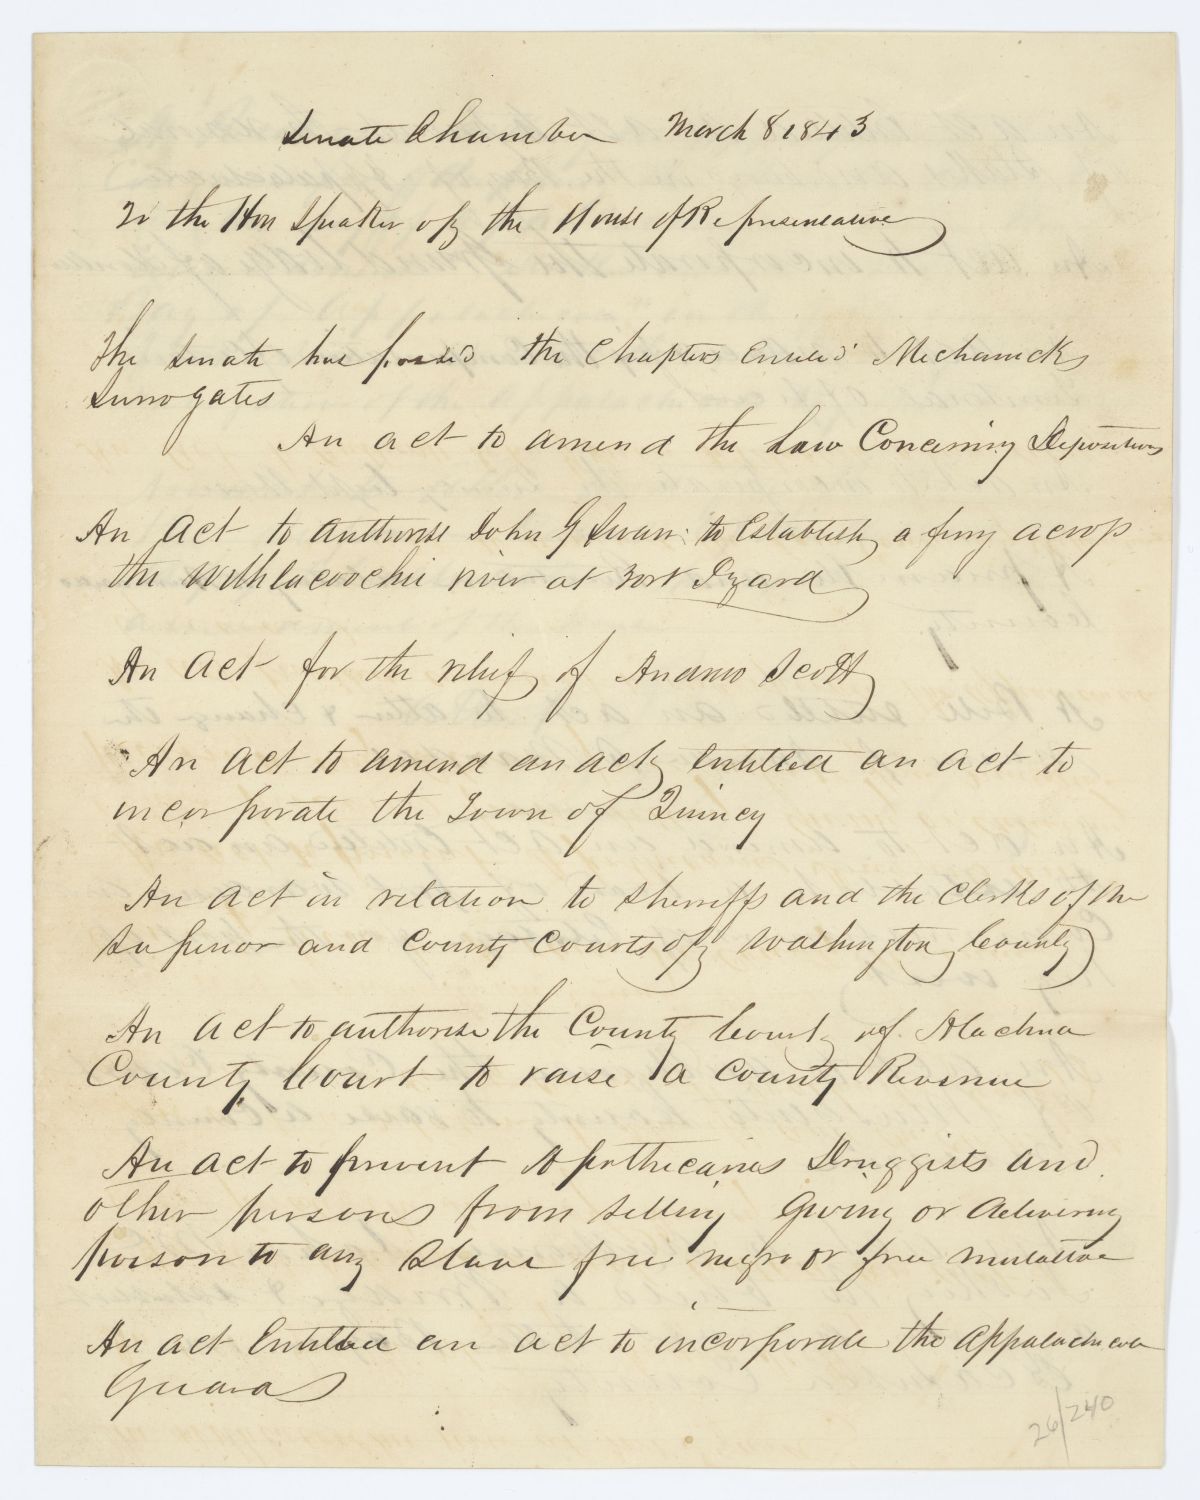 Senate Chamber March 8 1843
To the Hon Speaker of the House of Representative
The Senate has passed the Chapters Entitled Mechanicks
Surrogates
An act to amend the Law Concerning Depositions
An Act to authorise John G Swan to Establish a ferry across
the Withlacoochie river at Fort Izard
An Act for the relief of Scott
An Act to amend an act entitled an act to
incorporate the Town of Quincy
An Act in relation to Sherriffs and the Clerks of the
Superior and County Courts of Washington County
An Act to authorise the County Court of Alachua
County Court to raise a County Revenue
An Act to prevent Apothecaries Druggists and
other persons from selling Giving or delivering
poison to any Slave free negro or free mulattoe
An act Entitled an act to incorporate the Appalachicola
Guards
26/240